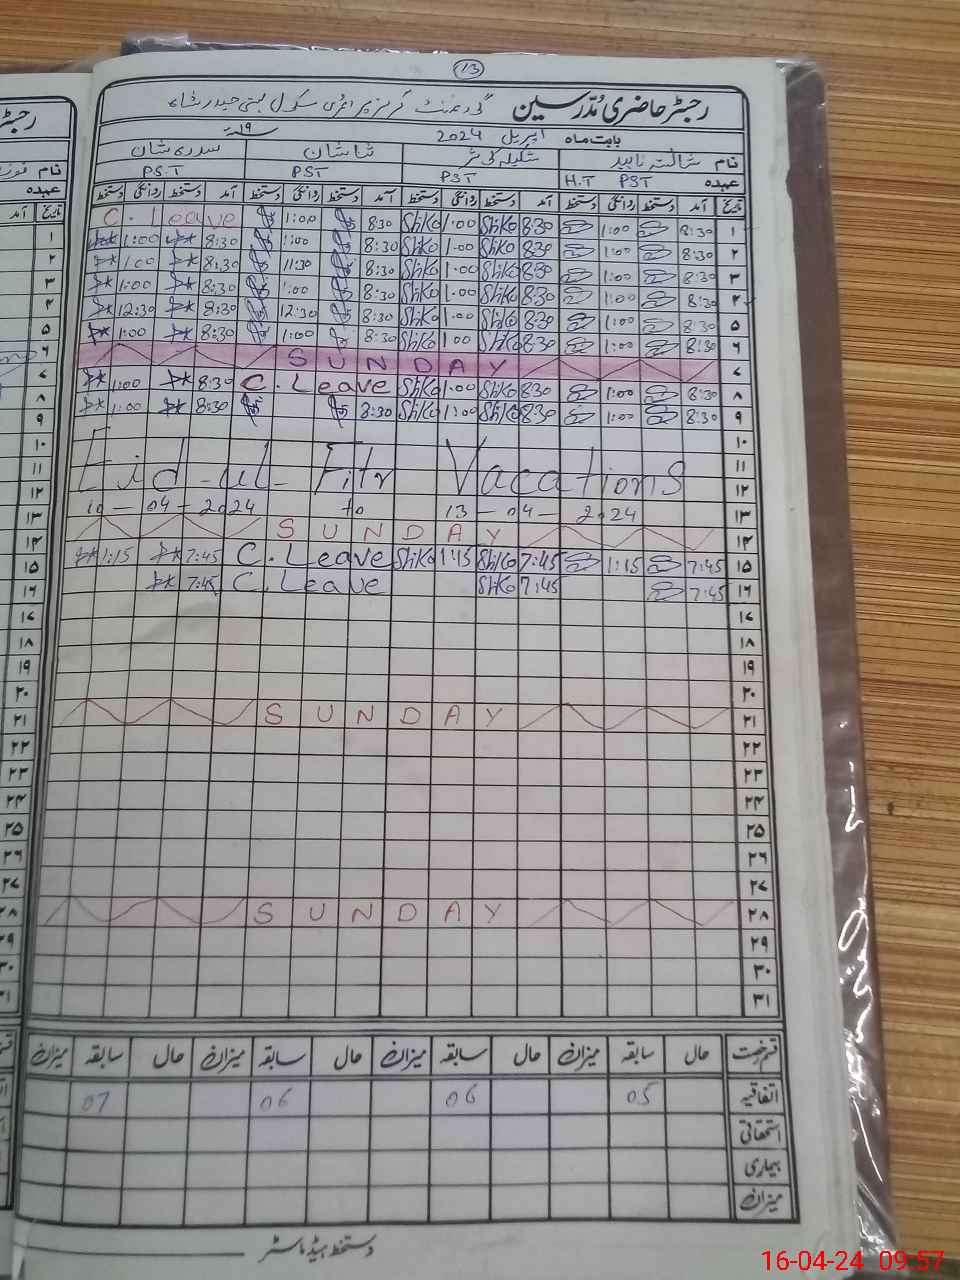 13
رجسٹر حاضری مُدرسین گورنمنٹ گرلز پرائمری سکول بستی حیدر شاہ
بابت ماہ اپریل 2024 ۱۹ء
نام شائستہ ناہید شکیلہ کوثر
عہدہ H.T PST PST PST PS.T
تاریخ آمد دستخط روانگی دستخط آمد دستخط روانگی دستخط آمد دستخط روانگی دستخط آمد دستخط روانگی دستخط
۱ 8:30 1:00 8:30 Shko 1:00 Shko 8:30 1:00 C. Leave
۲ 8:30 1:00 8:30 Shko 1:00 Shko 8:30 1:00 8:30 1:00
۳ 8:30 1:00 8:30 Shko 1:00 Shko 8:30 11:30 8:30 1:00
۴ 8:30 1:00 8:30 Shko 1:00 Shko 8:30 1:00 8:30 1:00
۵ 8:30 1:00 8:30 Shko 1:00 Shko 8:30 12:30 8:30 12:30
۶ 8:30 1:00 8:30 Shko 1:00 Shko 8:30 1:00 8:30 1:00
۷ SUNDAY
۸ 8:30 1:00 8:30 Shko 1:00 Shko C. Leave 8:30 1:00
۹ 8:30 1:00 8:30 Shko 1:00 Shko 8:30 8:30 1:00
۱۰
۱۱ Eid-ul-Fitr Vacations
۱۲
۱۳ 10-04-2024 to 13-04-2024
۱۴ SUNDAY
۱۵ 7:45 1:15 7:45 Shko 1:15 Shko C. Leave 7:45 1:15
۱۶ 7:45 7:45 Shko C. Leave 7:45
۱۷
۱۸
۱۹
۲۰
۲۱ SUNDAY
۲۲
۲۳
۲۴
۲۵
۲۶
۲۷
۲۸ SUNDAY
۲۹
۳۰
۳۱
قسم رخصت حال سابقہ میزان حال سابقہ میزان حال سابقہ میزان حال سابقہ میزان
اتفاقیہ 05 06 06 07
استحقاقی
بیماری
میزان
دستخط ہیڈ ماسٹر
16-04-24 09:57